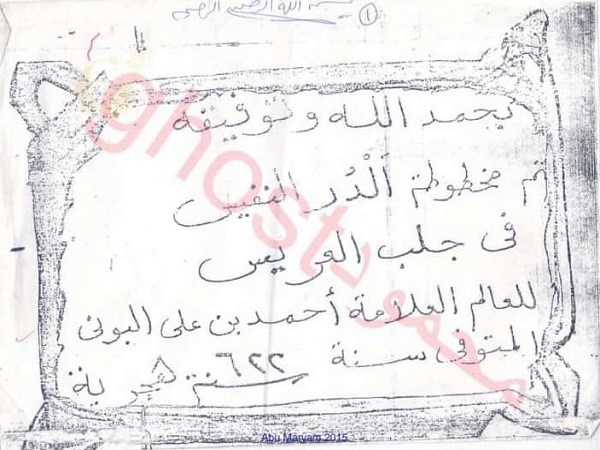 بسم الله الرحمن الرحيم
١
بحمد الله وتوفيقه
تم مخطوطة الْدُر النفيس
فى جلب العريس
للعالم العلامة أحمد بن على البونى
المتوفى سنة ٦٢٢ سنة هجرية
ghost محمود
Abu Maryam 2015